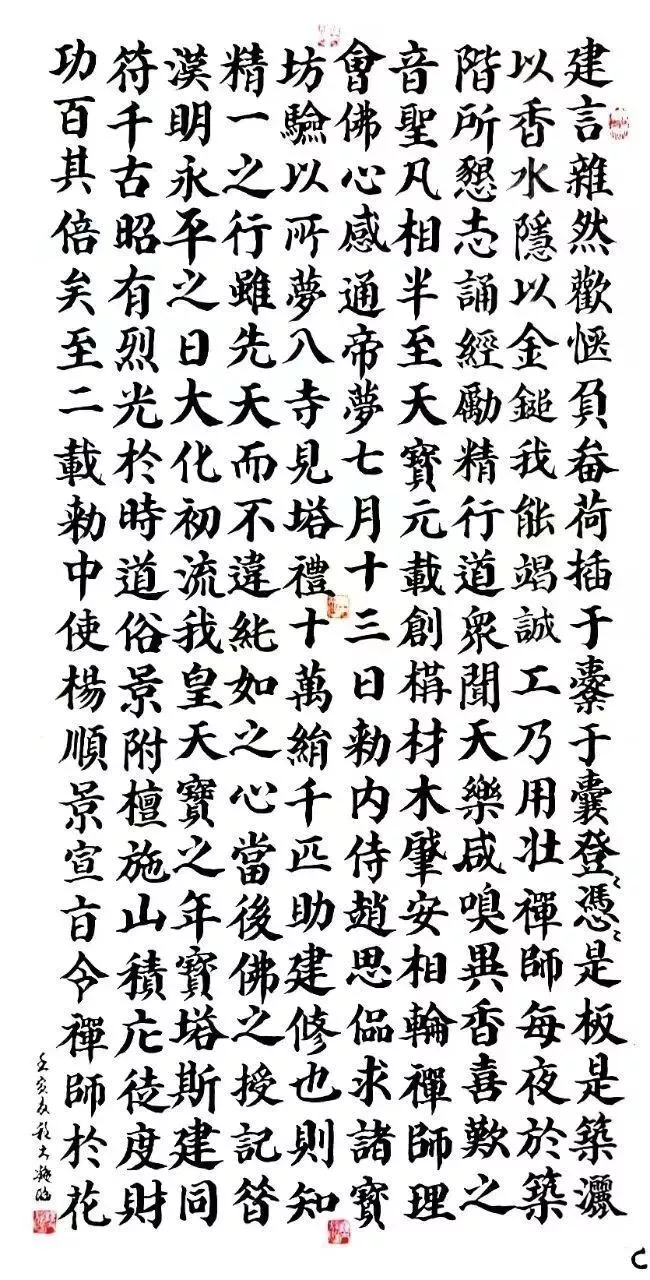 建言雜然歡愜負畚荷插于橐于囊登〻憑〻是板是築灑
以香水隱以金鎚我能竭誠工乃用壯禪師每夜於築
階所懇志誦經勵精行道眾聞天樂咸嗅異香喜歎之
音聖凡相半至天寶元載創構材木肇安相輪禪師理
會佛心感通帝夢七月十三日勑內侍趙思偘求諸寶
坊驗以所夢入寺見塔禮十萬絹千匹助建修也則知
精一之行雖先天而不違純如之心當後佛之授記昔
漢明永平之日大化初流我皇天寶之年寶塔斯建同
符千古昭有烈光於時道俗景附檀施山積庀徒度財
功百其倍矣至二載勑中使楊順景宣旨令禪師於花
壬寅